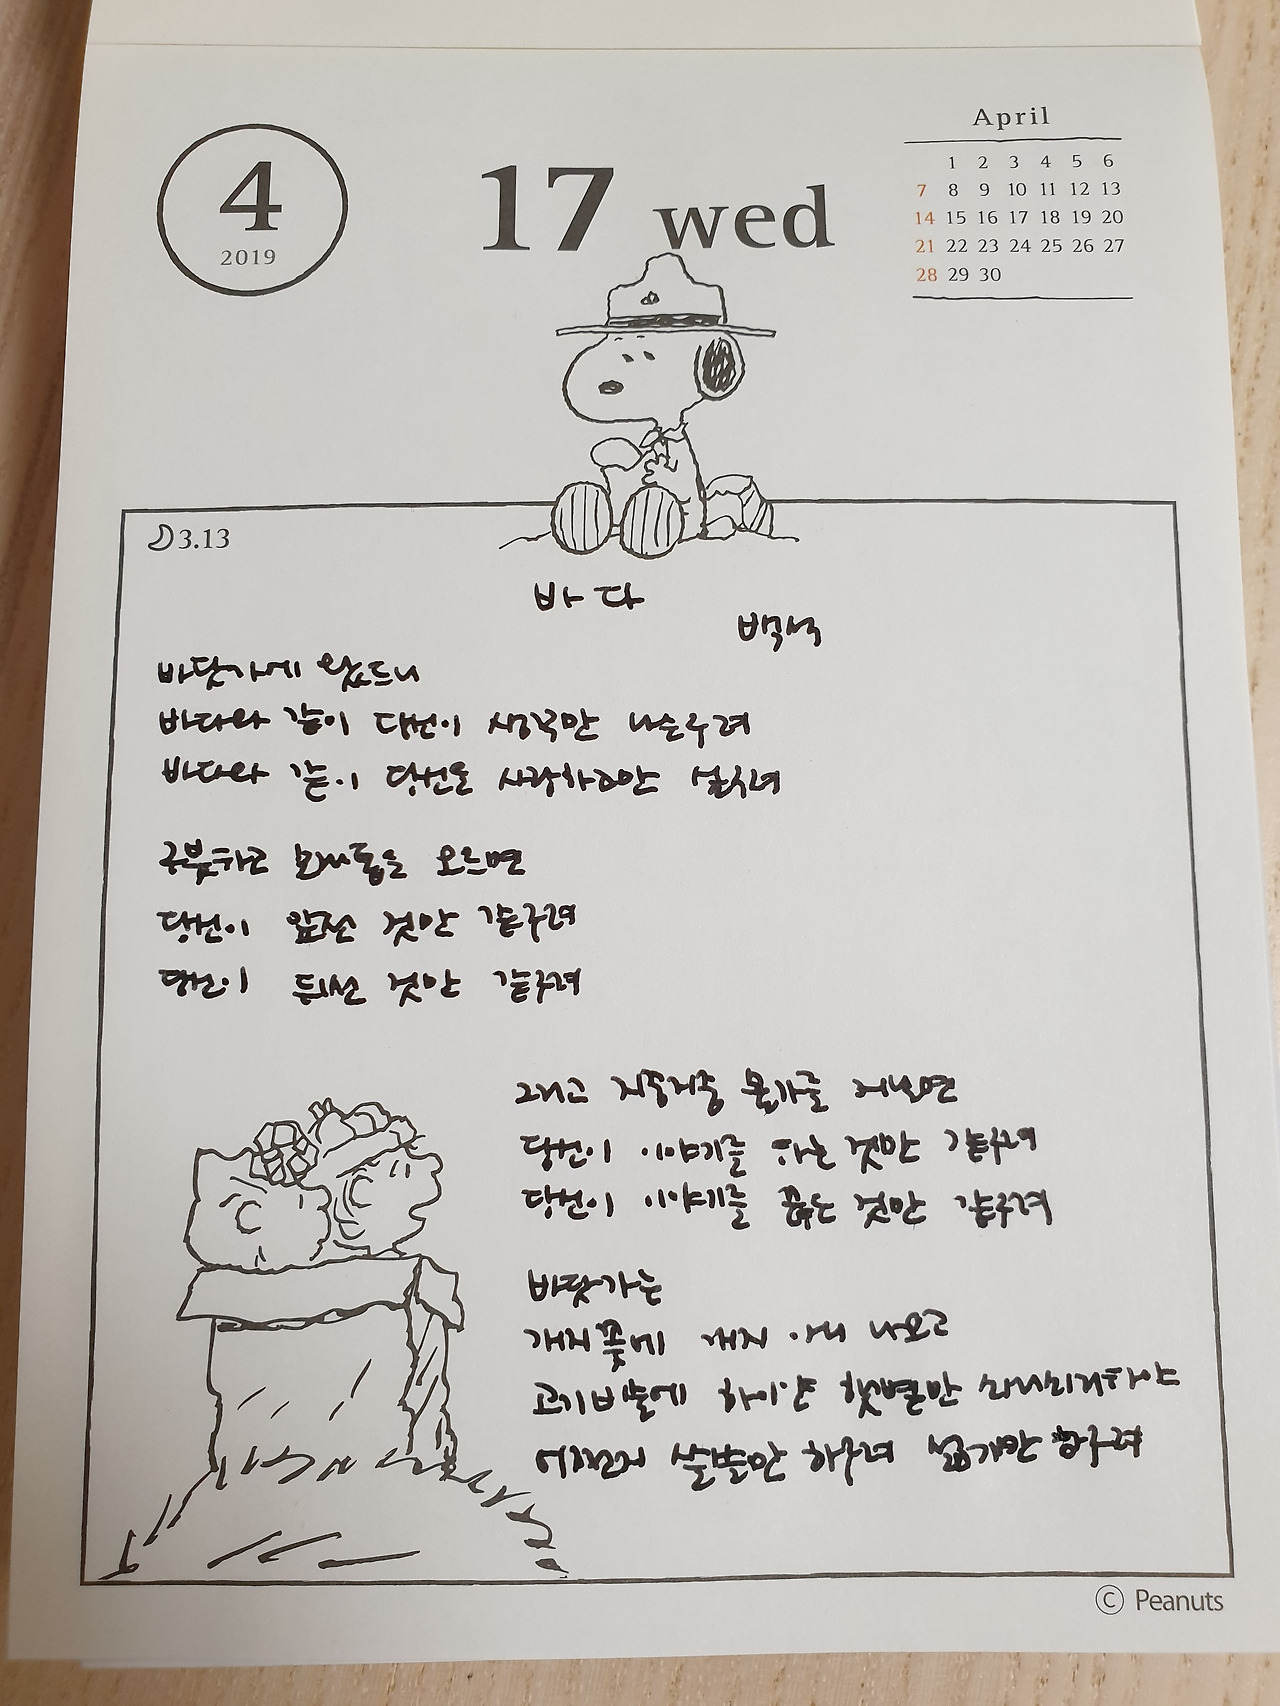 4
2019
17 wed
April
1 2 3 4 5 6
7 8 9 10 11 12 13
14 15 16 17 18 19 20
21 22 23 24 25 26 27
28 29 30
3.13
바다
백석
바닷가에 왔드니
바다와 같이 당신이 생각만 나는구려
바다와 같이 당신을 사랑하고만 싶구려
구붓하고 모래톱을 오르면
당신이 앞선 것만 같구려
당신이 뒤선 것만 같구려
그리고 지중지중 물가를 거닐면
당신이 이야기를 하는 것만 같구려
당신이 이야기를 끊는 것만 같구려
바닷가는
개지꽃에 개지 아니 나오고
고기비눌에 하이얀 햇볕만 쇠리쇠리하야
어쩐지 쓸쓸만 하구려 섧기만 하구려
© Peanuts